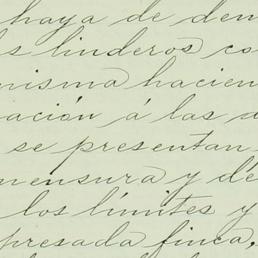 haya de den
s linderos co
misma hacien
ación á las a
se presentan
mensura y de
los límites y
presada finca,